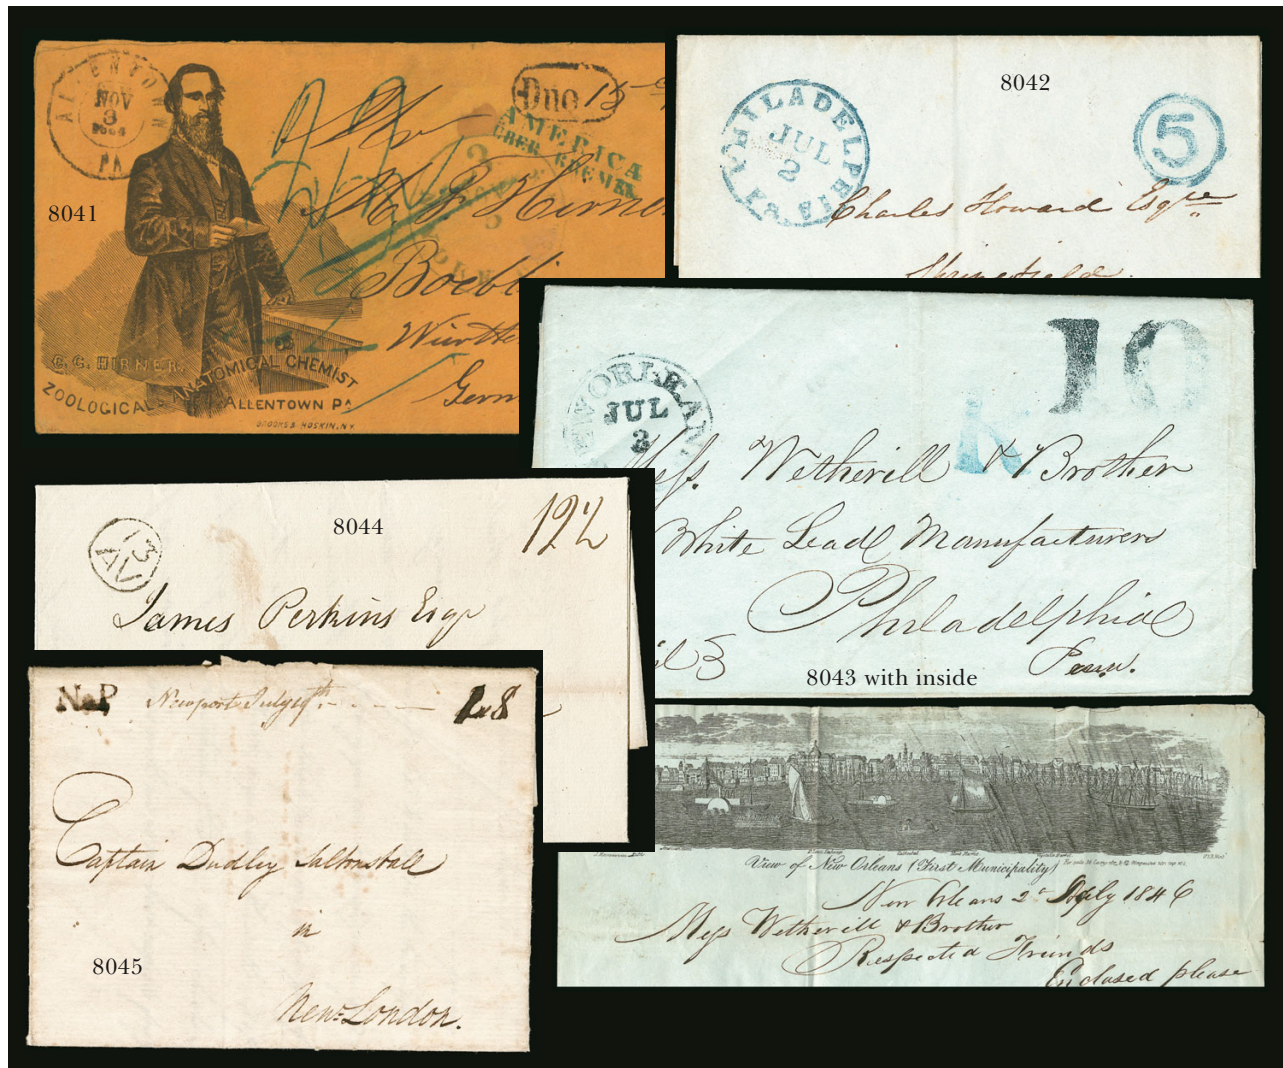 ALLENTOWN
NOV
3
PA
Due 15
AMERICA
UBER BREMEN
Boebli
Germ
8041
C. G. HIRNER.
ZOOLOGICAL & ANATOMICAL CHEMIST
ALLENTOWN PA
BROOKS & HOSKIN, N.Y.
8042
PHILADELPHIA Pa
JUL
2
5
Charles Howard Esqre
Springfield.
10
NEW ORLEANS
JUL
3
Mess. Wetherill & Brother
White Lead Manufacturers
Philadelphia
Penn.
8043 with inside
8044
13
AV
12½
James Perkins Esqr
N.P Newport July 19th 1.8
Captain Dudley Saltonstall
in
New London.
8045
View of New Orleans (First Municipality)
New Orleans 2d July 1846
Mess Wetherill & Brother
Respected Friends
Enclosed please